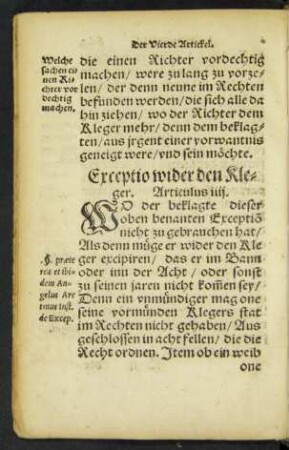 Der Vierde Artickel.
Welche
sachen ei
nen Ri-
chter vor
dechtig
machen.
die einen Richter vordechtig
machen/ were zu lang zu vorze-
len/ der denn neune im Rechten
befunden werden/ die sich alle da
hin ziehen/ wo der Richter dem
Kleger mehr/ denn dem beklag-
ten/ aus jrgent einer vorwantnis
geneigt were/ vnd sein möchte.
Exceptio wider den Kle-
ger. Articulus iiij.
WO der beklagte dieser
oben benanten Exceptiõ
nicht zu gebrauchen hat/
Als denn müge er wider den Kle
ger excipiren/ das er im Bann
oder inn der Acht/ oder sonst
zu seinen jaren nicht kom̃en sey/
Denn ein vnmündiger mag one
seine vormünden Klegers stat
im Rechten nicht gehaben/ Aus
geschlossen in acht fellen/ die die
Recht ordnen. Item ob ein weib
one
§. præte
rea et ibi
dem An-
gelus Are
tinus Inst.
de Excep.